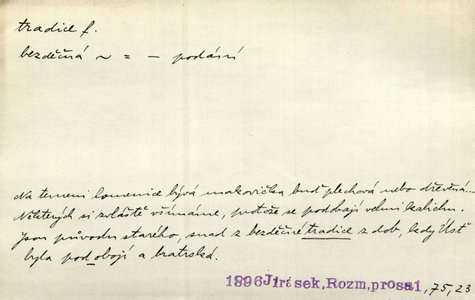 tradice f.
bezděčná ~ = — podání
Na temeni lomenice bývá makovička buď plechová nebo dřevěná...
Některých si zvláště všímáme, protože se podobají velmi kalichu.
Jsou původu starého, snad z bezděčné tradice z dob, kdy Úst'
byla podobojí a bratrská.
1896 Jirásek, Rozm, prosa 1, 75, 23